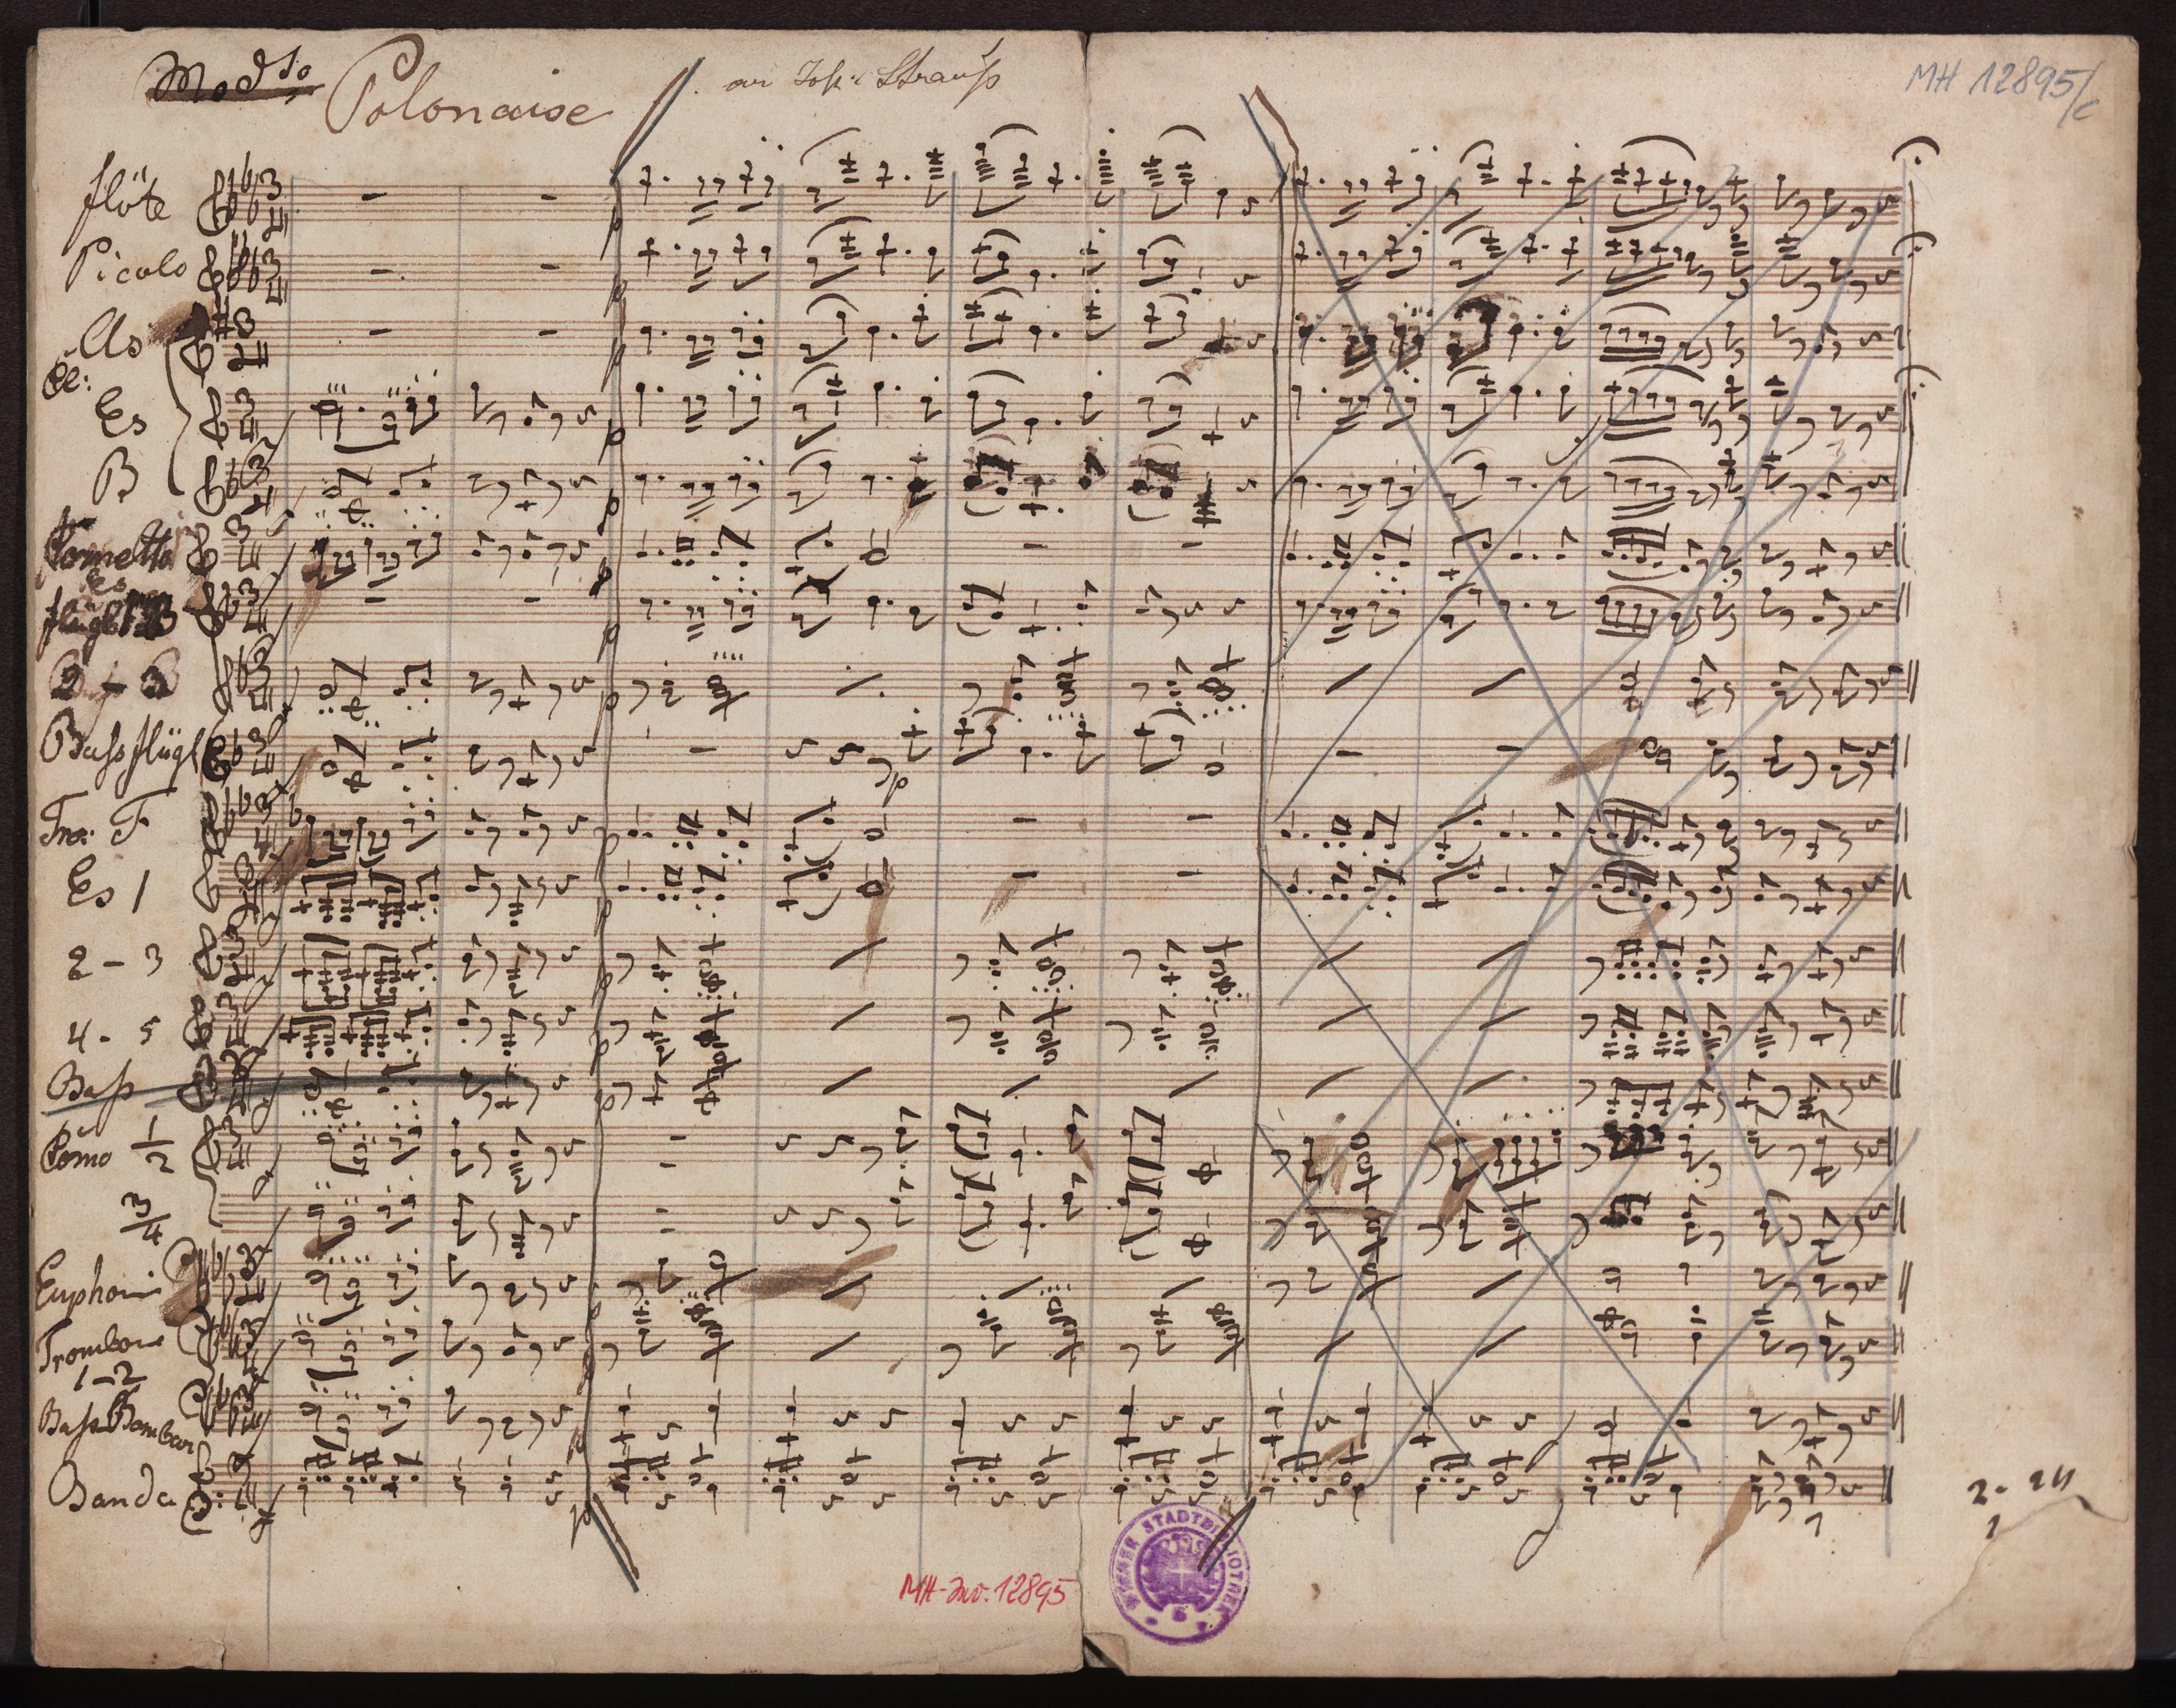 Mod.to Polonaise
an Joh: Strauß
MH 12895/c
flöte
Picolo
As
Cl:
Es
B
Cornetto
Es
flügl B
2 - 3
Bass flügl
Tro: F
Es 1
2 - 3
4 - 5
Bass
Corno 1/2
3/4
Euphoni
Trombone
1-2
Bass Bombar
Banda
MH-Inv. 12895
WIENER STADTBIBLIOTHEK